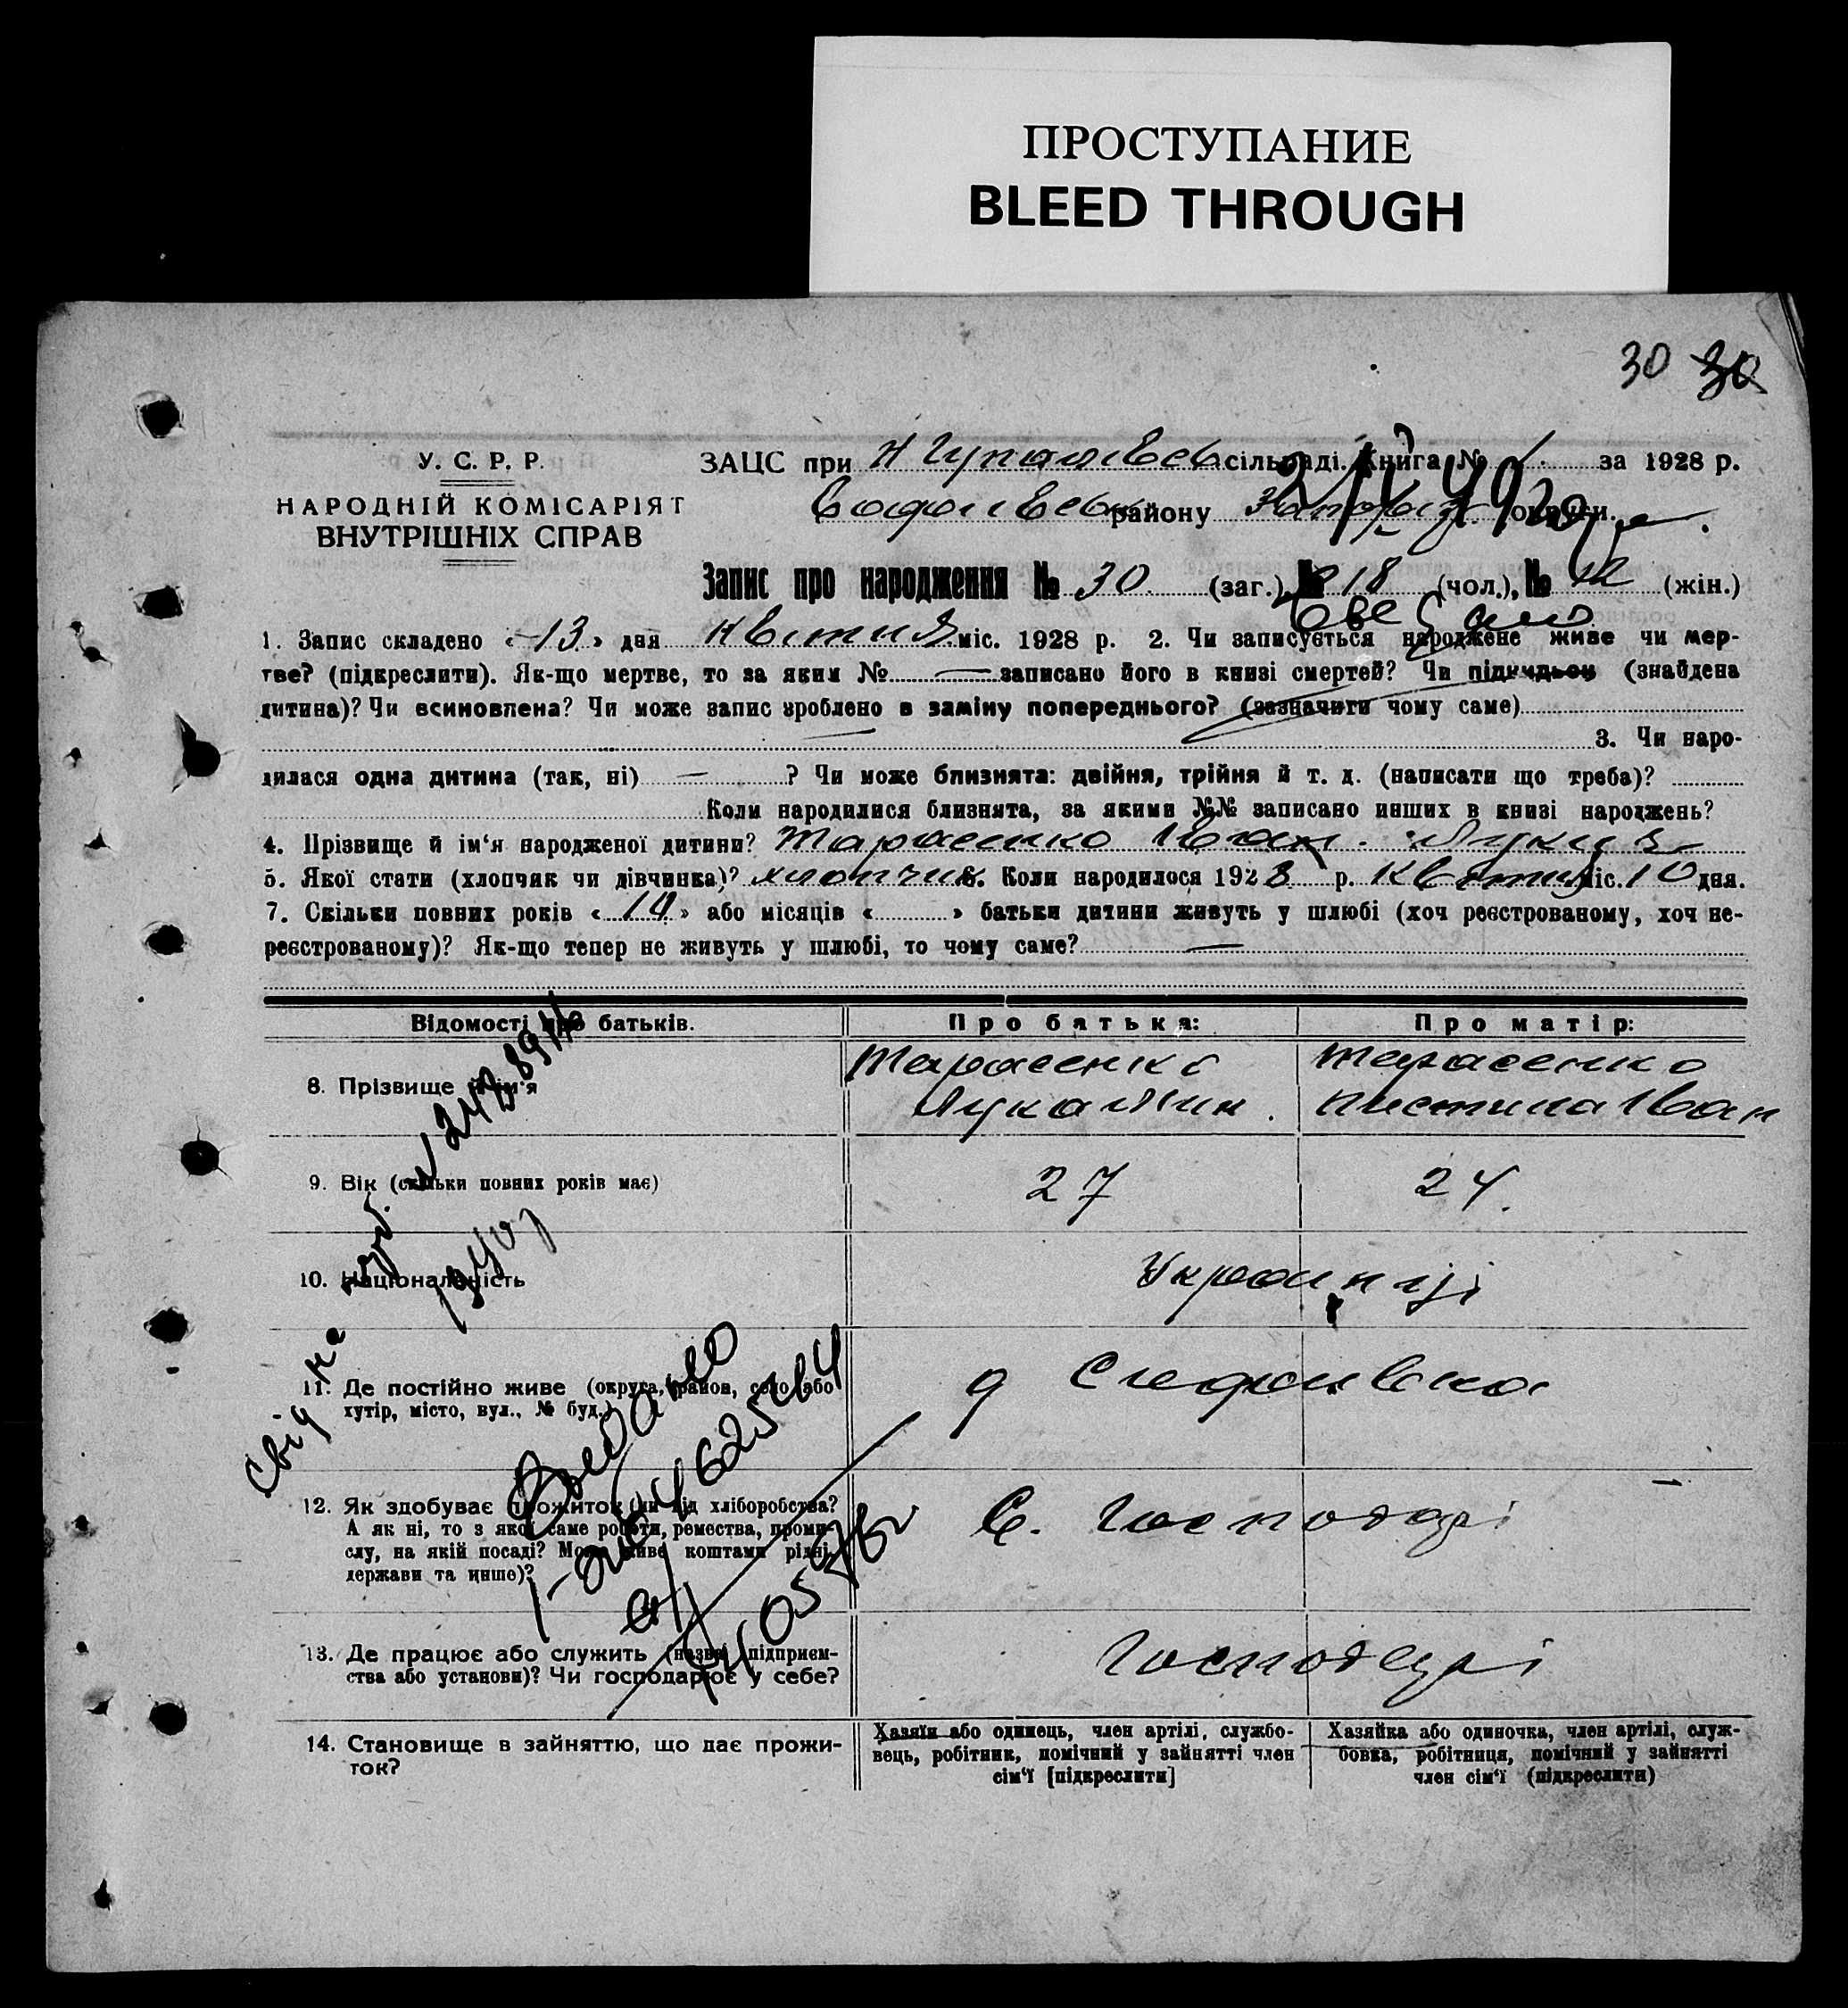 ПРОСТУПАНИЕ
BLEED THROUGH
30 30
У. С. Р. Р.
НАРОДНІЙ КОМІСАРІЯТ
ВНУТРІШНІХ СПРАВ
ЗАЦС при сільраді. Книга № 1 за 1928 р.
району округи.
Запис про народження № 30 (заг.), № 18 (чол.), № 12 (жін.)
1. Запис складено «13» дня квітня міс. 1928 р. 2. Чи записується народжене живе чи мер-
тве? (підкреслити). Як-що мертве, то за яким № — записано його в книзі смертей? Чи підкидьок (знайдена
дитина)? Чи всиновлена? Чи може запис зроблено в заміну попереднього? (зазначити чому саме)
3. Чи наро-
дилася одна дитина (так, ні) — ? Чи може близнята: двійня, трійня й т. д. (написати що треба)?
Коли народилися близнята, за якими №№ записано инших в книзі народжень?
4. Прізвище й ім‘я народженої дитини? Тарасенко Іван
5. Якої стати (хлопчяк чи дівчинка)? хлопчик 6. Коли народилося 1928 р. Квітня міс. 10 дня.
7. Скільки повних років « » або місяців « » батьки дитини живуть у шлюбі (хоч реєстрованому, хоч не-
реєстрованому)? Як-що тепер не живуть у шлюбі, то чому саме? —
Відомості про батьків. Про батька: Про матір:
8. Прізвище й ім‘я Тарасенко Тарасенко
Лука Іван
9. Вік (скільки повних років має) 27 24.
10. Національність Українці
11. Де постійно живе (округа, район, село або
хутір, місто, вул., № буд.)
12. Як здобуває прожиток (чи від хліборобства?
А як ні, то з якої саме роботи, ремества, проми-
слу, на якій посаді? Може живе коштами рідні,
держави та инше)? С. Господарі
13. Де працює або служить (назва підприєм-
ства або установи)? Чи господарює у себе? Господарі
14. Становище в зайняттю, що дає прожи-
ток?
Хазяїн або одинець, член артілі, службо-
вець, робітник, помічний у зайнятті член
сім‘ї [підкреслити]
Хазяйка або одиночка, член артілі, служ-
бовка, робітниця, помічний у зайнятті
член сім‘ї (підкреслити)